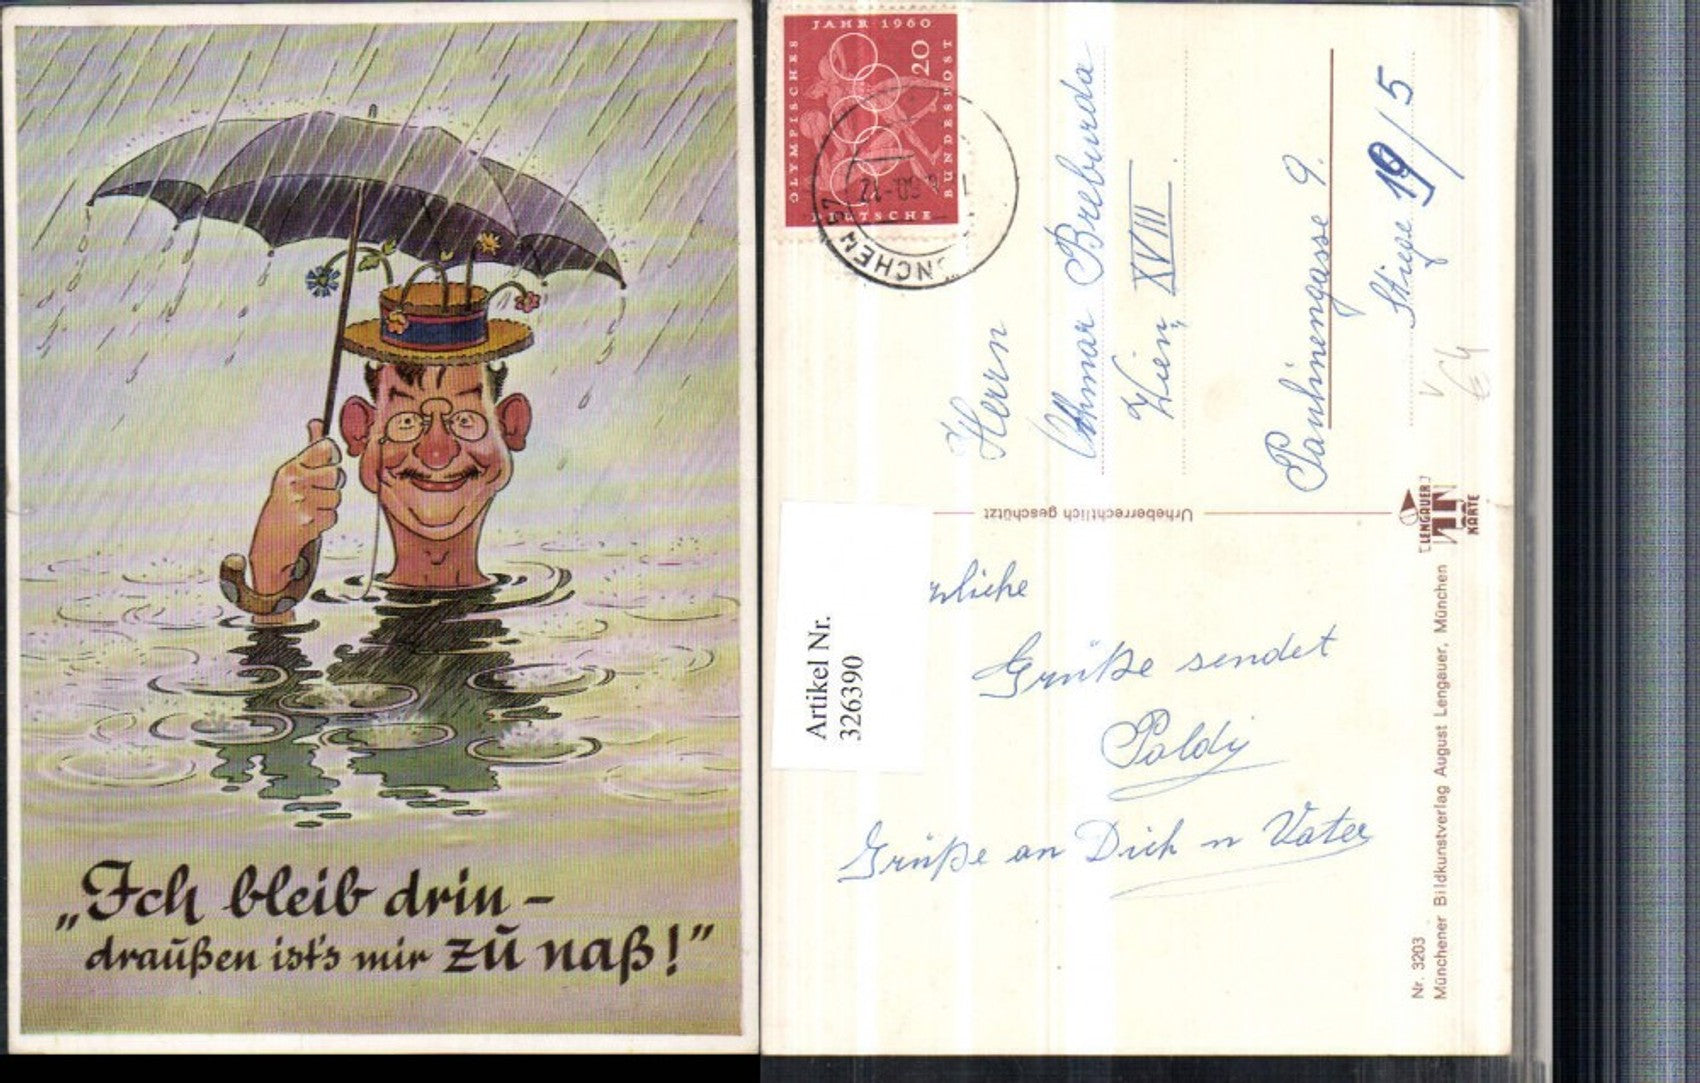 „Ich bleib drin –
draußen ist's mir zu naß!"
JAHR 1960
OLYMPISCHES
20
BUNDESPOST
DEUTSCHE
MÜNCHEN
Herrn
Othmar Breburda
Wien, XVIII.
Paulinengasse 9.
Stiege 19/5
Urheberrechtlich geschützt
LENGAUER
KARTE
Artikel Nr.
326390
rzliche
Grüße sendet
Poldy
Grüße an Dich u Vater
Nr. 3203
Münchener Bildkunstverlag August Lengauer, München